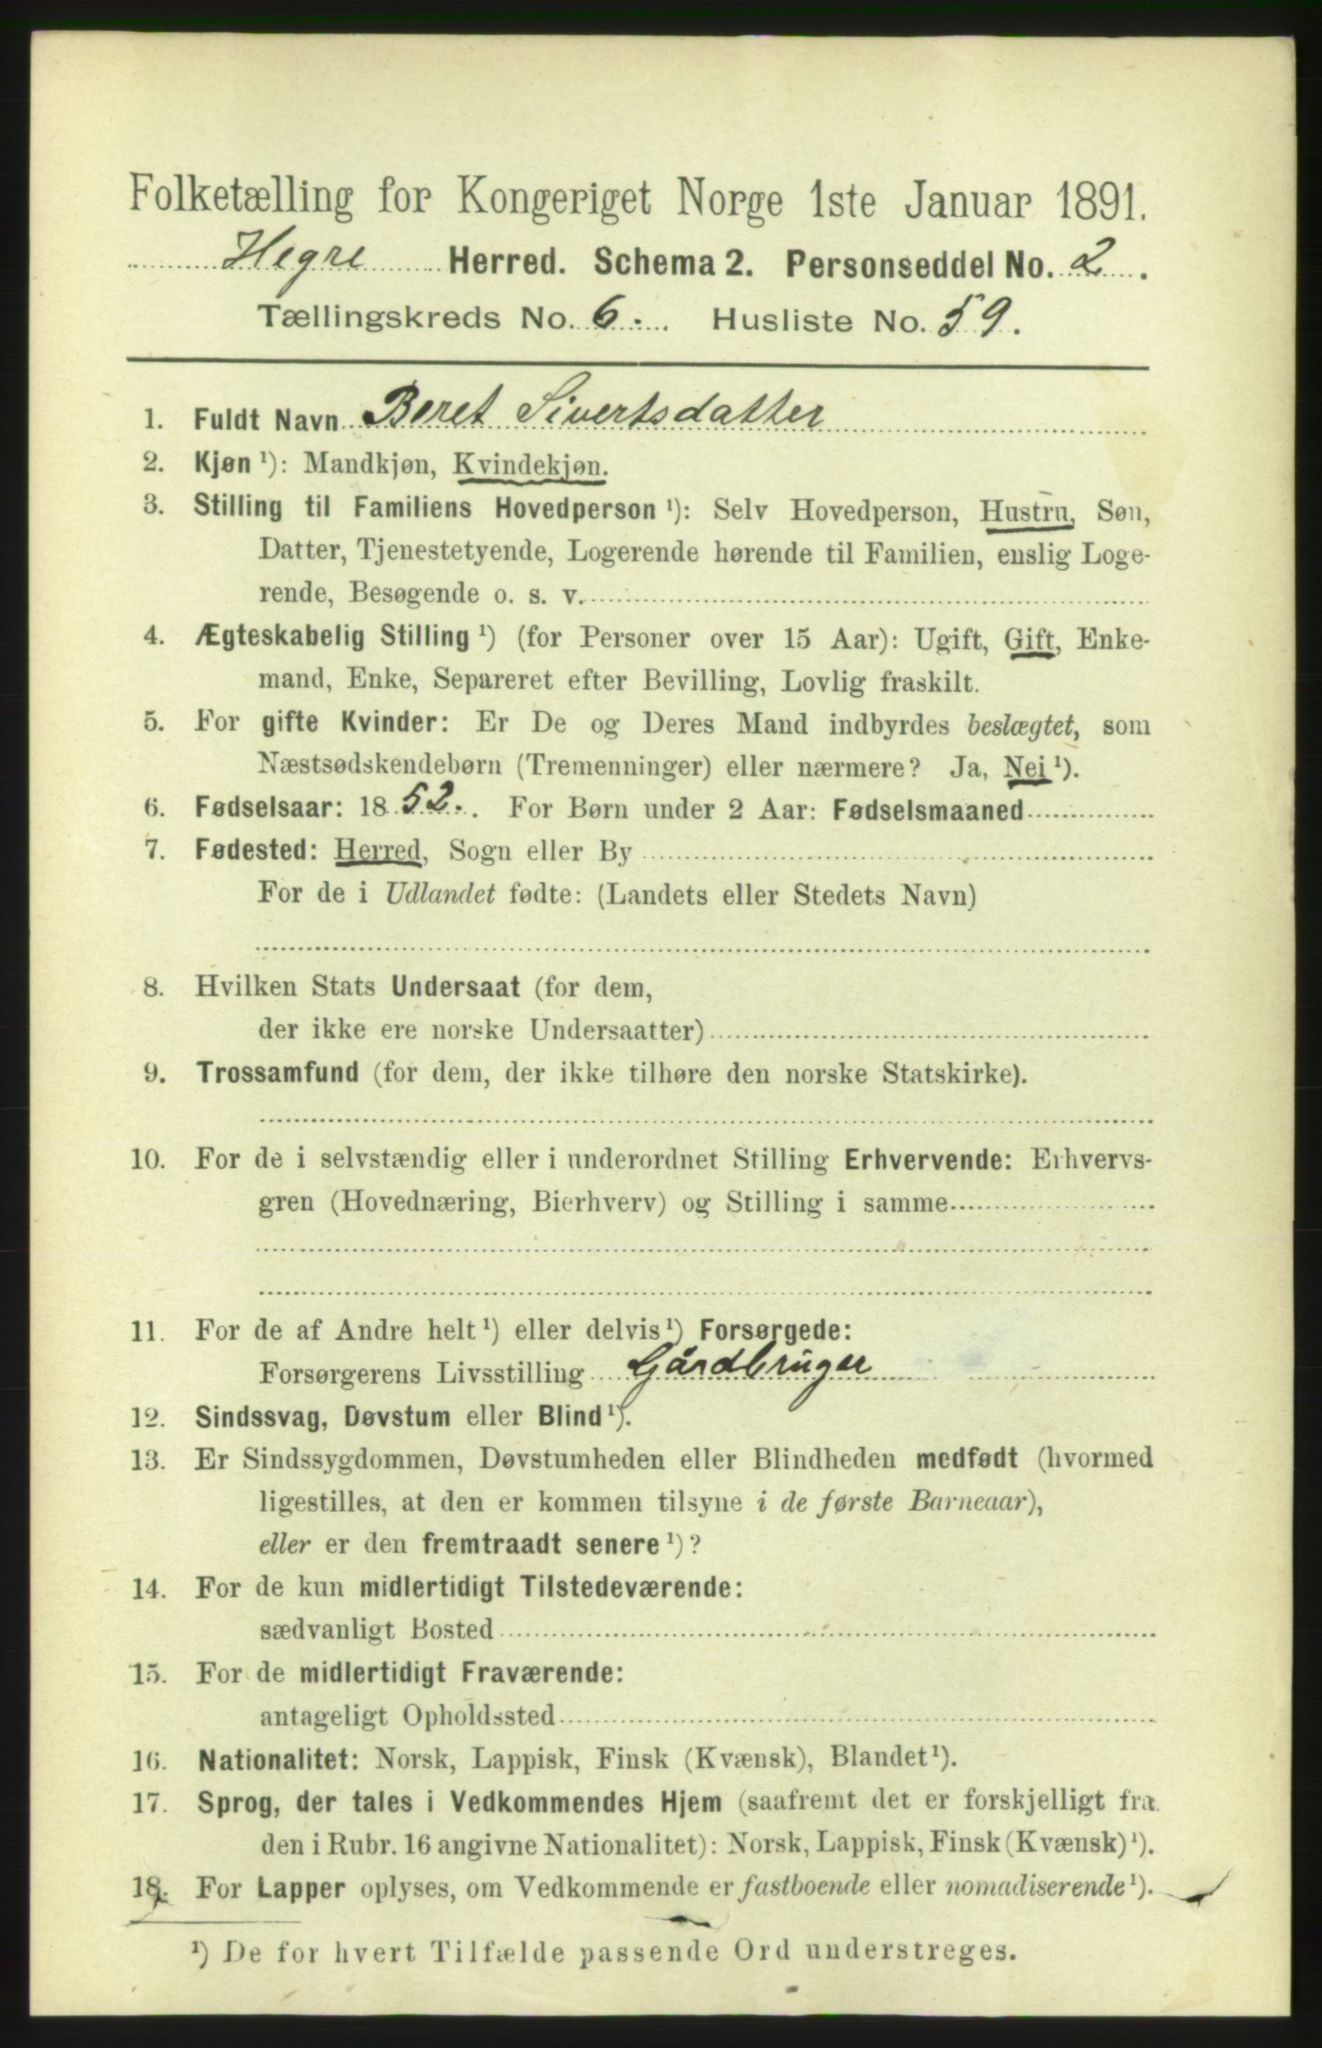 Folketælling for Kongeriget Norge 1ste Januar 1891.
Hegre Herred. Schema 2. Personseddel No. 2.
Tællingskreds No. 6. Husliste No. 59.
1. Fuldt Navn Beret Sivertsdatter
2. Kjøn ¹): Mandkjøn, Kvindekjøn.
3. Stilling til Familiens Hovedperson ¹): Selv Hovedperson, Hustru, Søn,
Datter, Tjenestetyende, Logerende hørende til Familien, enslig Loge-
rende, Besøgende o. s. v.
4. Ægteskabelig Stilling ¹) (for Personer over 15 Aar): Ugift, Gift, Enke-
mand, Enke, Separeret efter Bevilling, Lovlig fraskilt.
5. For gifte Kvinder: Er De og Deres Mand indbyrdes beslægtet, som
Næstsødskendebørn (Tremenninger) eller nærmere? Ja, Nei ¹).
6. Fødselsaar: 1852. For Børn under 2 Aar: Fødselsmaaned
7. Fødested: Herred, Sogn eller By
For de i Udlandet fødte: (Landets eller Stedets Navn)
8. Hvilken Stats Undersaat (for dem,
der ikke ere norske Undersaatter)
9. Trossamfund (for dem, der ikke tilhøre den norske Statskirke).
10. For de i selvstændig eller i underordnet Stilling Erhvervende: Erhvervs-
gren (Hovednæring, Bierhverv) og Stilling i samme
11. For de af Andre helt ¹) eller delvis ¹) Forsørgede:
Forsørgerens Livsstilling Gårdbruger
12. Sindssvag, Døvstum eller Blind ¹).
13. Er Sindssygdommen, Døvstumheden eller Blindheden medfødt (hvormed
ligestilles, at den er kommen tilsyne i de første Barneaar),
eller er den fremtraadt senere ¹)?
14. For de kun midlertidigt Tilstedeværende:
sædvanligt Bosted
15. For de midlertidigt Fraværende:
antageligt Opholdssted
16. Nationalitet: Norsk, Lappisk, Finsk (Kvænsk), Blandet ¹).
17. Sprog, der tales i Vedkommendes Hjem (saafremt det er forskjelligt fra
den i Rubr. 16 angivne Nationalitet): Norsk, Lappisk, Finsk (Kvænsk) ¹).
18. For Lapper oplyses, om Vedkommende er fastboende eller nomadiserende ¹).
¹) De for hvert Tilfælde passende Ord understreges.